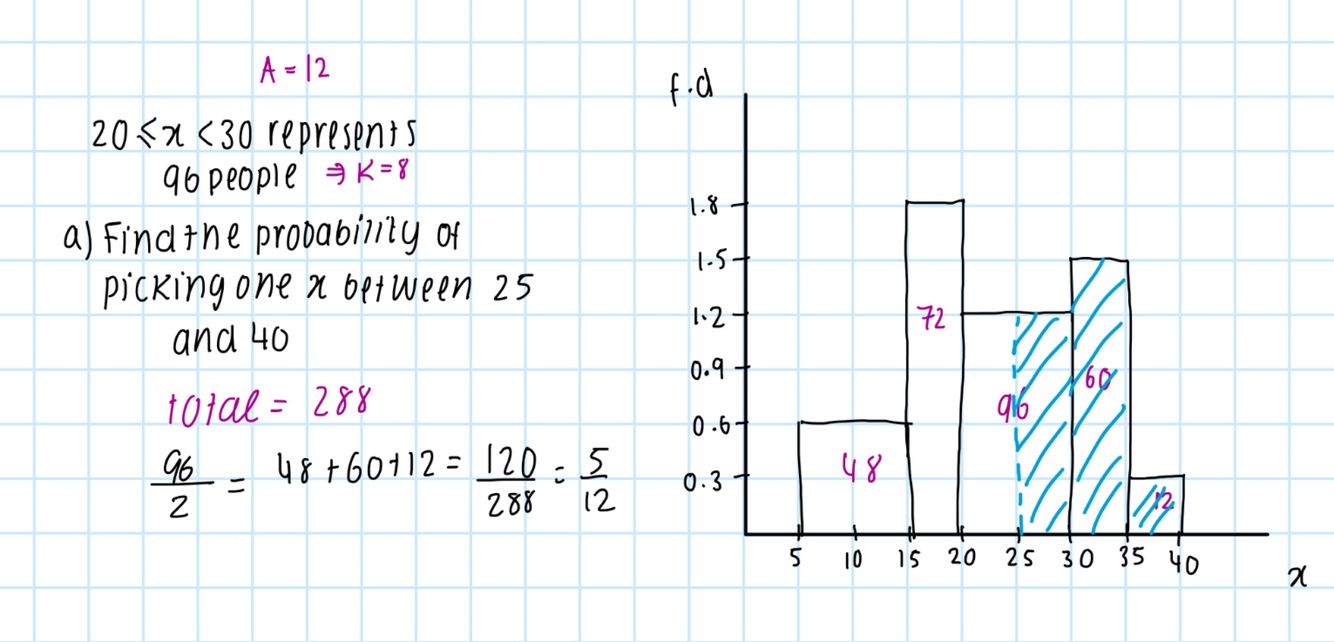 A = 12
20 ≤ x < 30 represents
96 people ⇒ K = 8
a) Find the probability of
picking one x between 25
and 40
total = 288
96/2 = 48 + 60 + 12 = 120/288 = 5/12
f.d
1.8
1.5
1.2
0.9
0.6
0.3
48
72
96
60
12
5 10 15 20 25 30 35 40
x